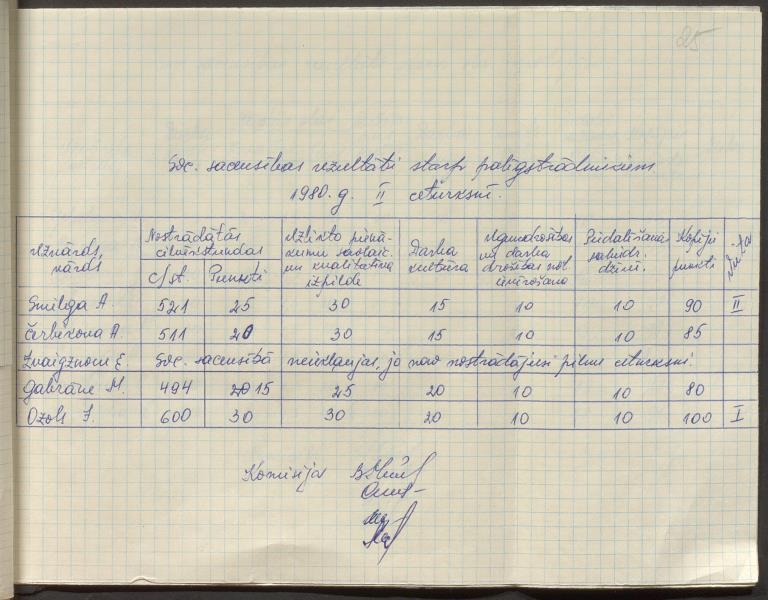 25
Soc. sacensības rezultāti starp palīgstrādniekiem
1980. g. II ceturksnī.
Uzvārds, vārds | Nostrādātās cilvēkstundas c/st. | Punkti | Uzlikto pienākumu savlaic. un kvalitatīva izpilde | Darba kultūra | Ugunsdrošības un darba drošības not. ievērošana | Piedalīšanās sabiedr. dzīvē. | Kopēji punkti | Vieta
Smilga A. 521 25 30 15 10 10 90 II
Čerbikova A. 511 20 30 15 10 10 85
Zvaigznone E. Soc. sacensībā neiekļaujas, jo nav nostrādājusi pilnu ceturksni.
Gabrāne M. 494 20 15 25 20 10 10 80
Ozols J. 600 30 30 20 10 10 100 I
Komisija